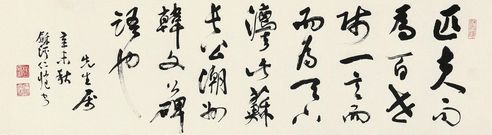 匹夫而
為百世
師一言
而為天下
法此蘇
長公潮州
韓文碑
語也
先生属
辛未秋
仁愷书